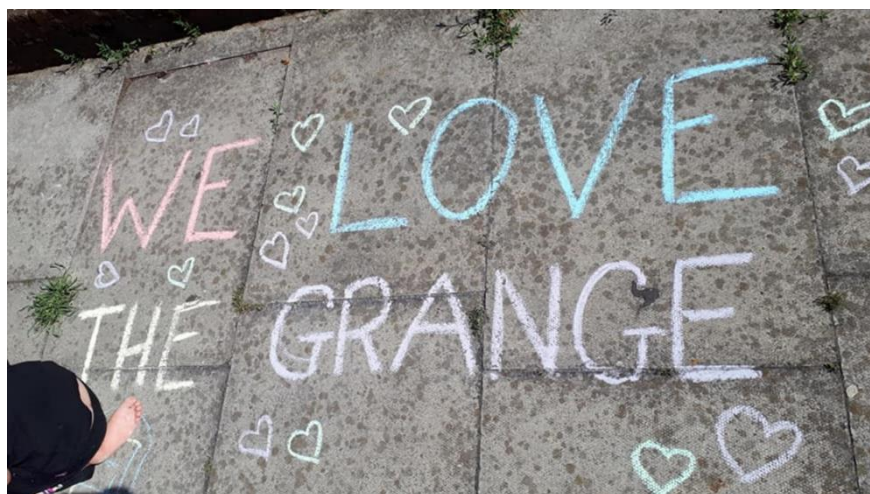 WE LOVE
THE GRANGE